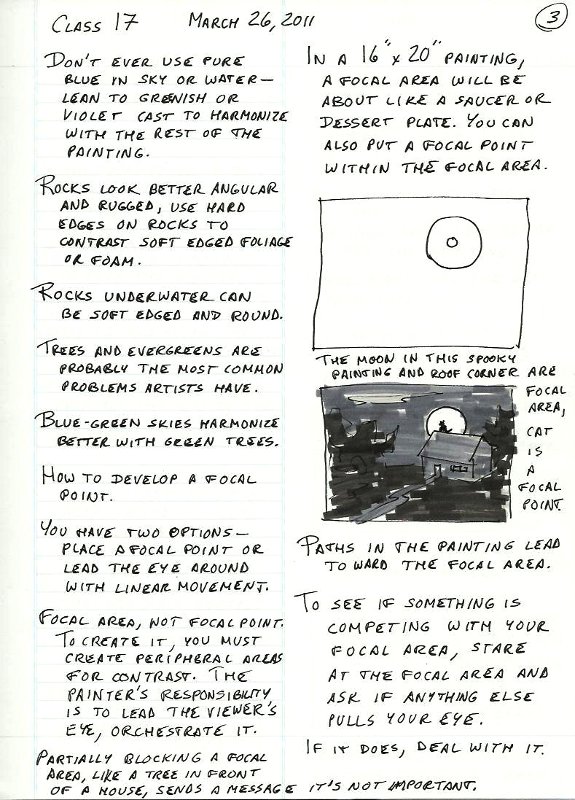 Class 17 March 26, 2011 3
Don't ever use pure
blue in sky or water—
lean to grenish or
violet cast to harmonize
with the rest of the
painting.
Rocks look better angular
and rugged, use hard
edges on rocks to
contrast soft edged foliage
or foam.
Rocks underwater can
be soft edged and round.
Trees and evergreens are
probably the most common
problems artists have.
Blue-green skies harmonize
better with green trees.
How to develop a focal
point.
You have two options—
place a focal point or
lead the eye around
with linear movement.
Focal area, not focal point.
To create it, you must
create peripheral areas
for contrast. The
painter's responsibility
is to lead the viewer's
eye, orchestrate it.
Partially blocking a focal
area, like a tree in front
of a house, sends a message it's not important.
In a 16" x 20" painting,
a focal area will be
about like a saucer or
dessert plate. You can
also put a focal point
within the focal area.
The moon in this spooky
painting and roof corner are
focal
area,
cat
is
a
focal
point.
Paths in the painting lead
to ward the focal area.
To see if something is
competing with your
focal area, stare
at the focal area and
ask if anything else
pulls your eye.
If it does, deal with it.